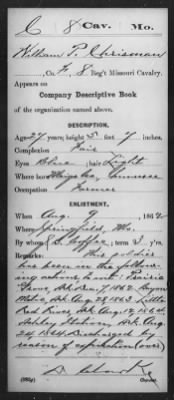 C 8 Cav. Mo.
William P. Chrisman
, Co. F, 8 Reg't Missouri Cavalry.
Appears on
Company Descriptive Book
of the organization named above.
DESCRIPTION.
Age 27 years; height 5 feet 7 inches.
Complexion Fair
Eyes Blue ; hair Light
Where born Co., Tennessee
Occupation Farmer
ENLISTMENT.
When Aug. 9 , 1862
Where Springfield, Mo.
By whom ; term 3 y'rs.
Remarks: This soldier
has been in the follow-
ing actions to wit: Prairie
Grove, Ark. Dec. 7, 1862. Bayou
Metoe, Ark. Aug. 28, 1863. Little
Red River, Ark.
Ashley Station, Ark. Aug.
24, 1864. Discharged by
reason of expiration (over)
Clark
Copyist.